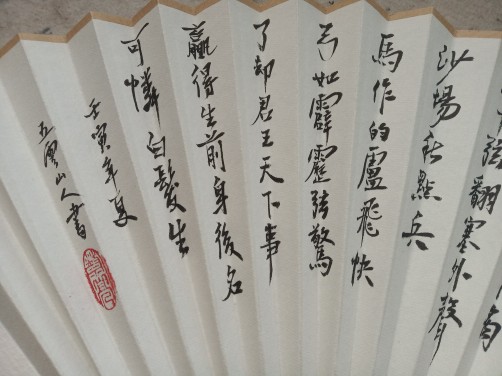 弦翻塞外聲
沙場秋點兵
馬作的盧飛快
弓如霹靂弦驚
了却君王天下事
贏得生前身後名
可憐白髮生
壬寅年夏
五雲山人書